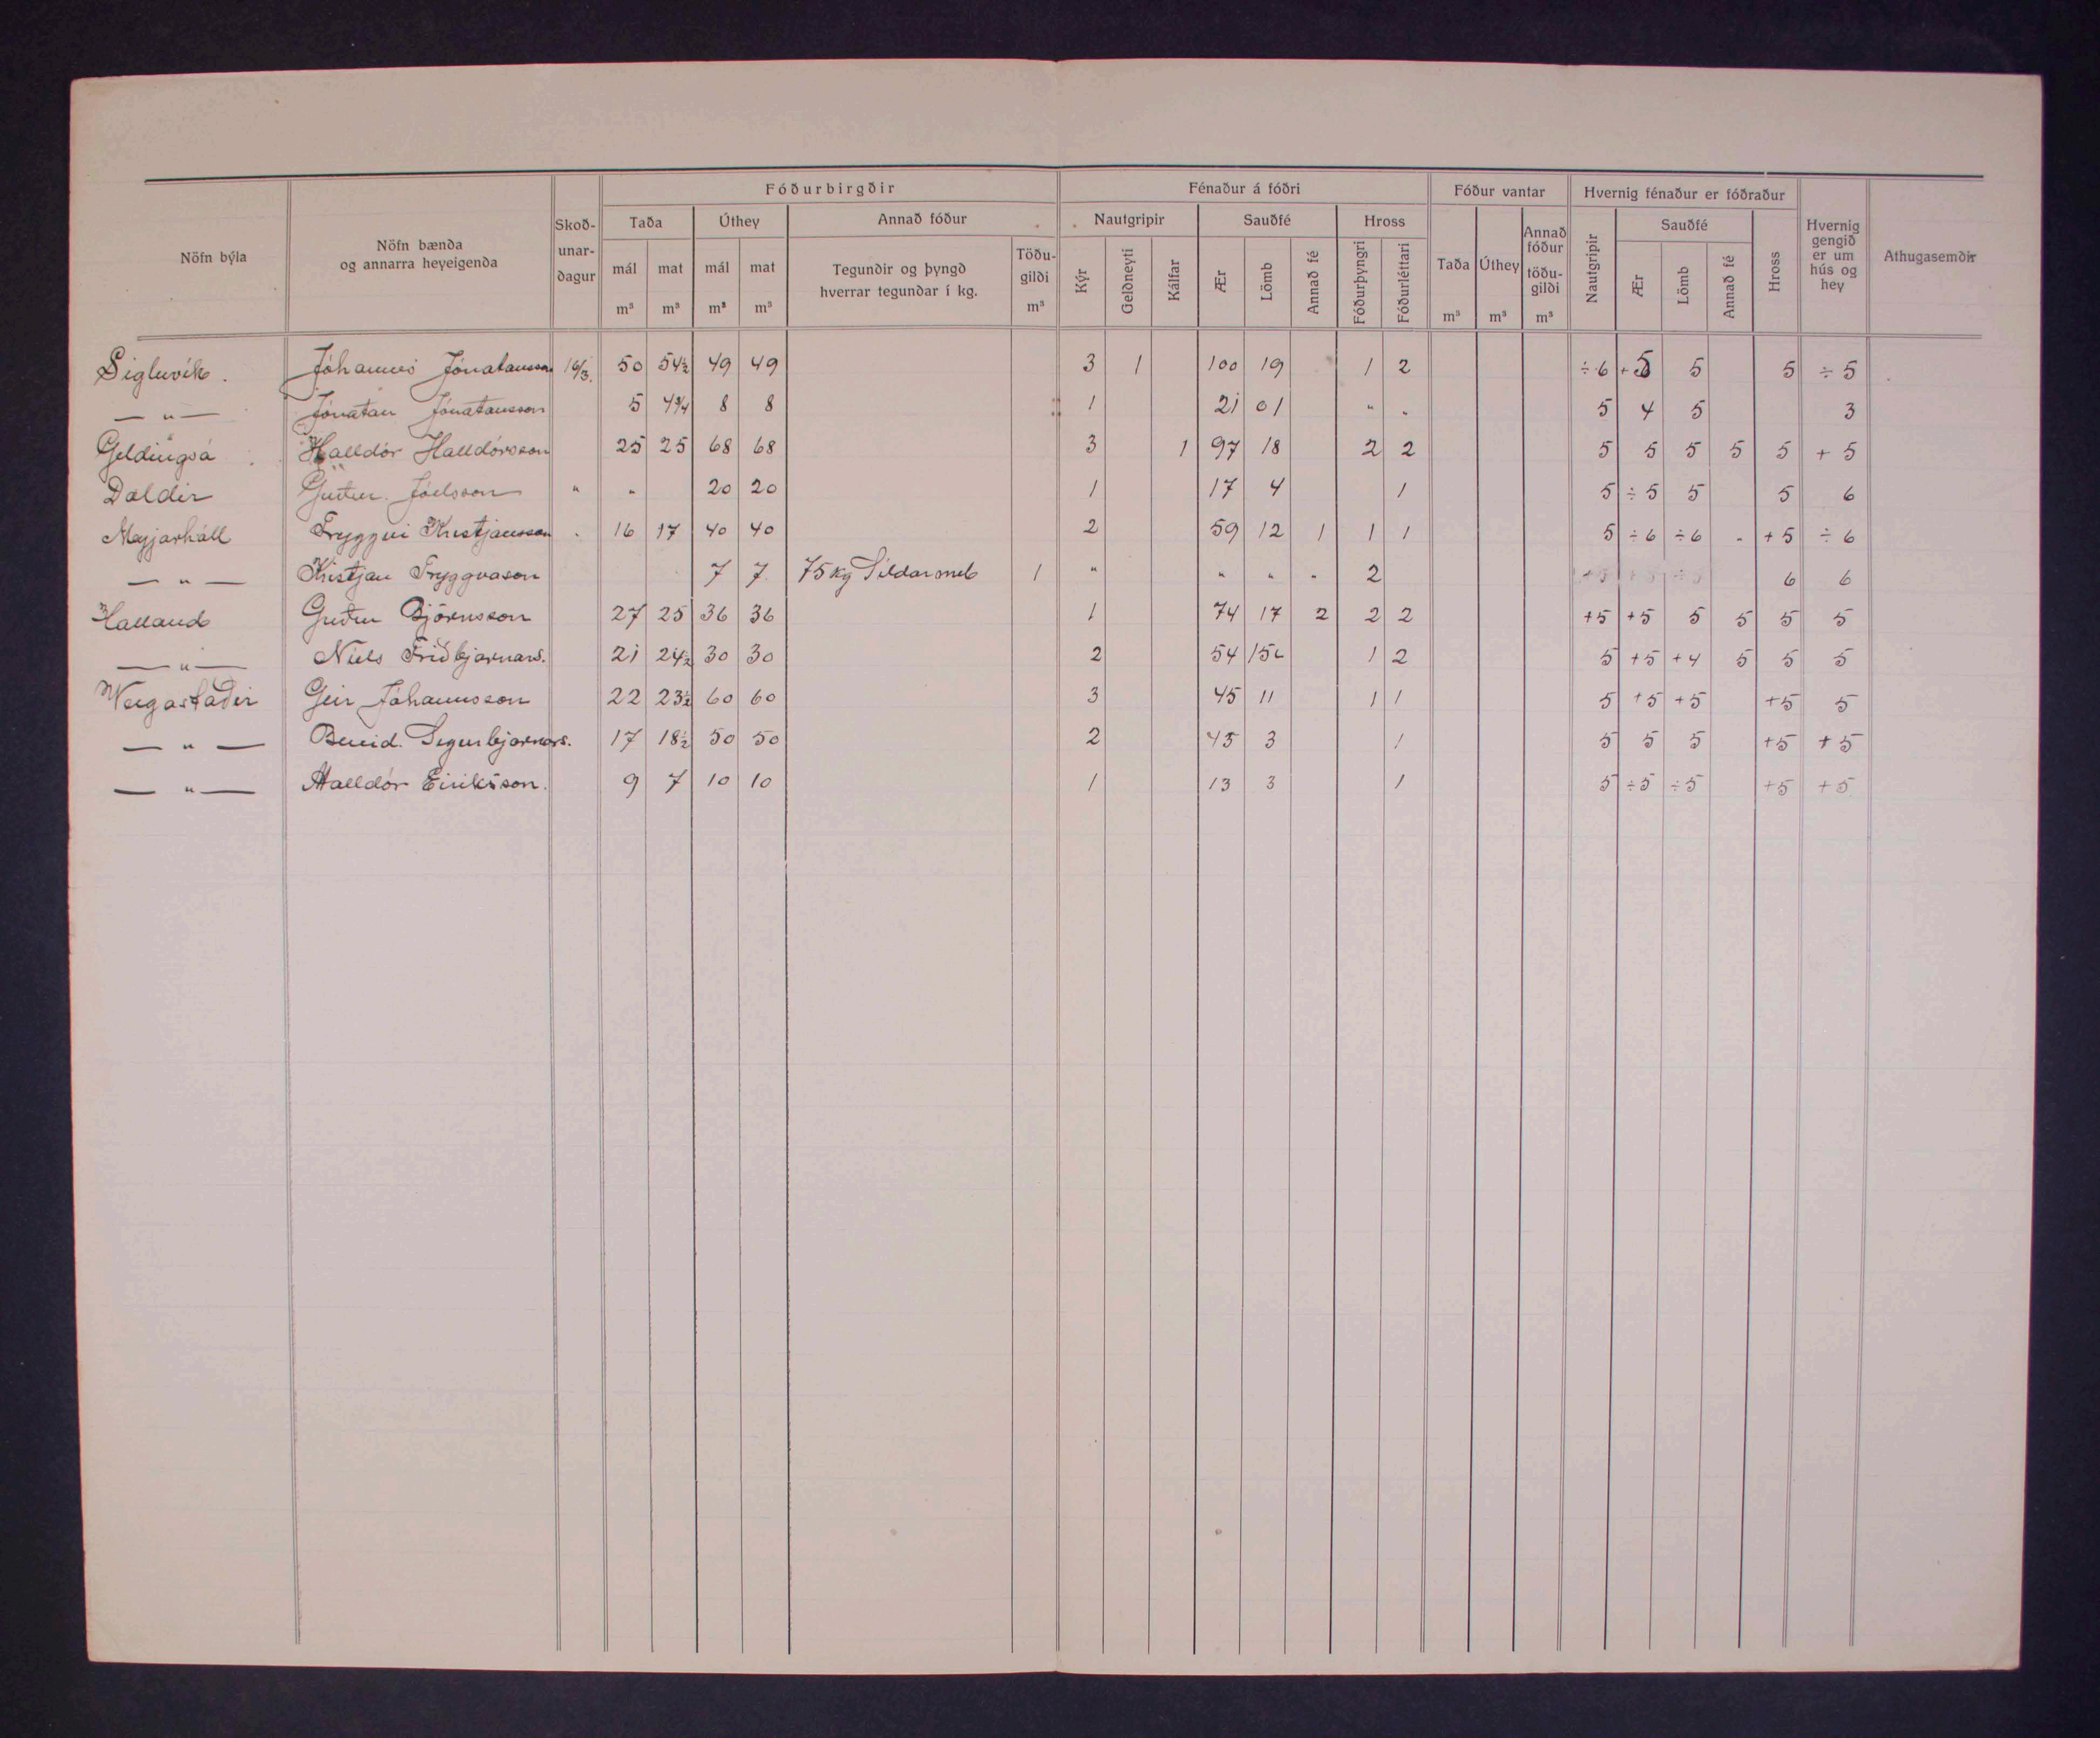 Fóðurbirgðir Fénaður á fóðri Fóður vantar Hvernig fénaður er fóðraður
Nöfn býla Nöfn bænda og annarra heyeigenda Skoð-unar-dagur Taða Úthey Annað fóður Nautgripir Sauðfé Hross Taða Úthey Annað fóður töðu-gildi Nautgripir Sauðfé Hross Hvernig gengið er um hús og hey Athugasemdir
mál mat mál mat Tegundir og þyngd hverrar tegundar í kg. Töðu-gildi Kýr Geldneyti Kálfar Ær Lömb Annað fé Fóðurþyngri Fóðurléttari Ær Lömb Annað fé
m³ m³ m³ m³ m³ m³ m³ m³
Sigluvík. Jóhannes Jónatansson 16/3. 50 54½ 49 49 3 1 100 19 1 2 ÷6 + 5 5 5 ÷5
— " — Jónatan Jónatansson 5 4¾ 8 8 1 21 01 " " 5 4 5 3
Geldingsá Halldór Halldórsson 25 25 68 68 3 1 97 18 2 2 5 5 5 5 5 +5
Daldir Guðm. Jóelsson " " 20 20 1 17 4 1 5 ÷5 5 5 6
Meyjarhóll Tryggvi Kristjansson 16 17 40 40 2 59 12 1 1 1 5 ÷6 ÷6 " +5 ÷6
— " — Kristjan Tryggvason 7 7 75 kg Síldarmél 1 " " " " 2 6 6
Halland Guðm Björnsson 27 25 36 36 1 74 17 2 2 2 +5 +5 5 5 5 5
— " — Níels Friðbjarnars. 21 24½ 30 30 2 54 15 1 2 5 +5 +4 5 5 5
Veigastaðir Geir Jóhannsson 22 23½ 60 60 3 45 11 1 1 5 +5 +5 +5 5
— " — Benid. Sigurbjarnars. 17 18½ 50 50 2 45 3 1 5 5 5 +5 +5
— " — Halldór Eiríksson. 9 7 10 10 1 13 3 1 5 ÷5 ÷5 +5 +5